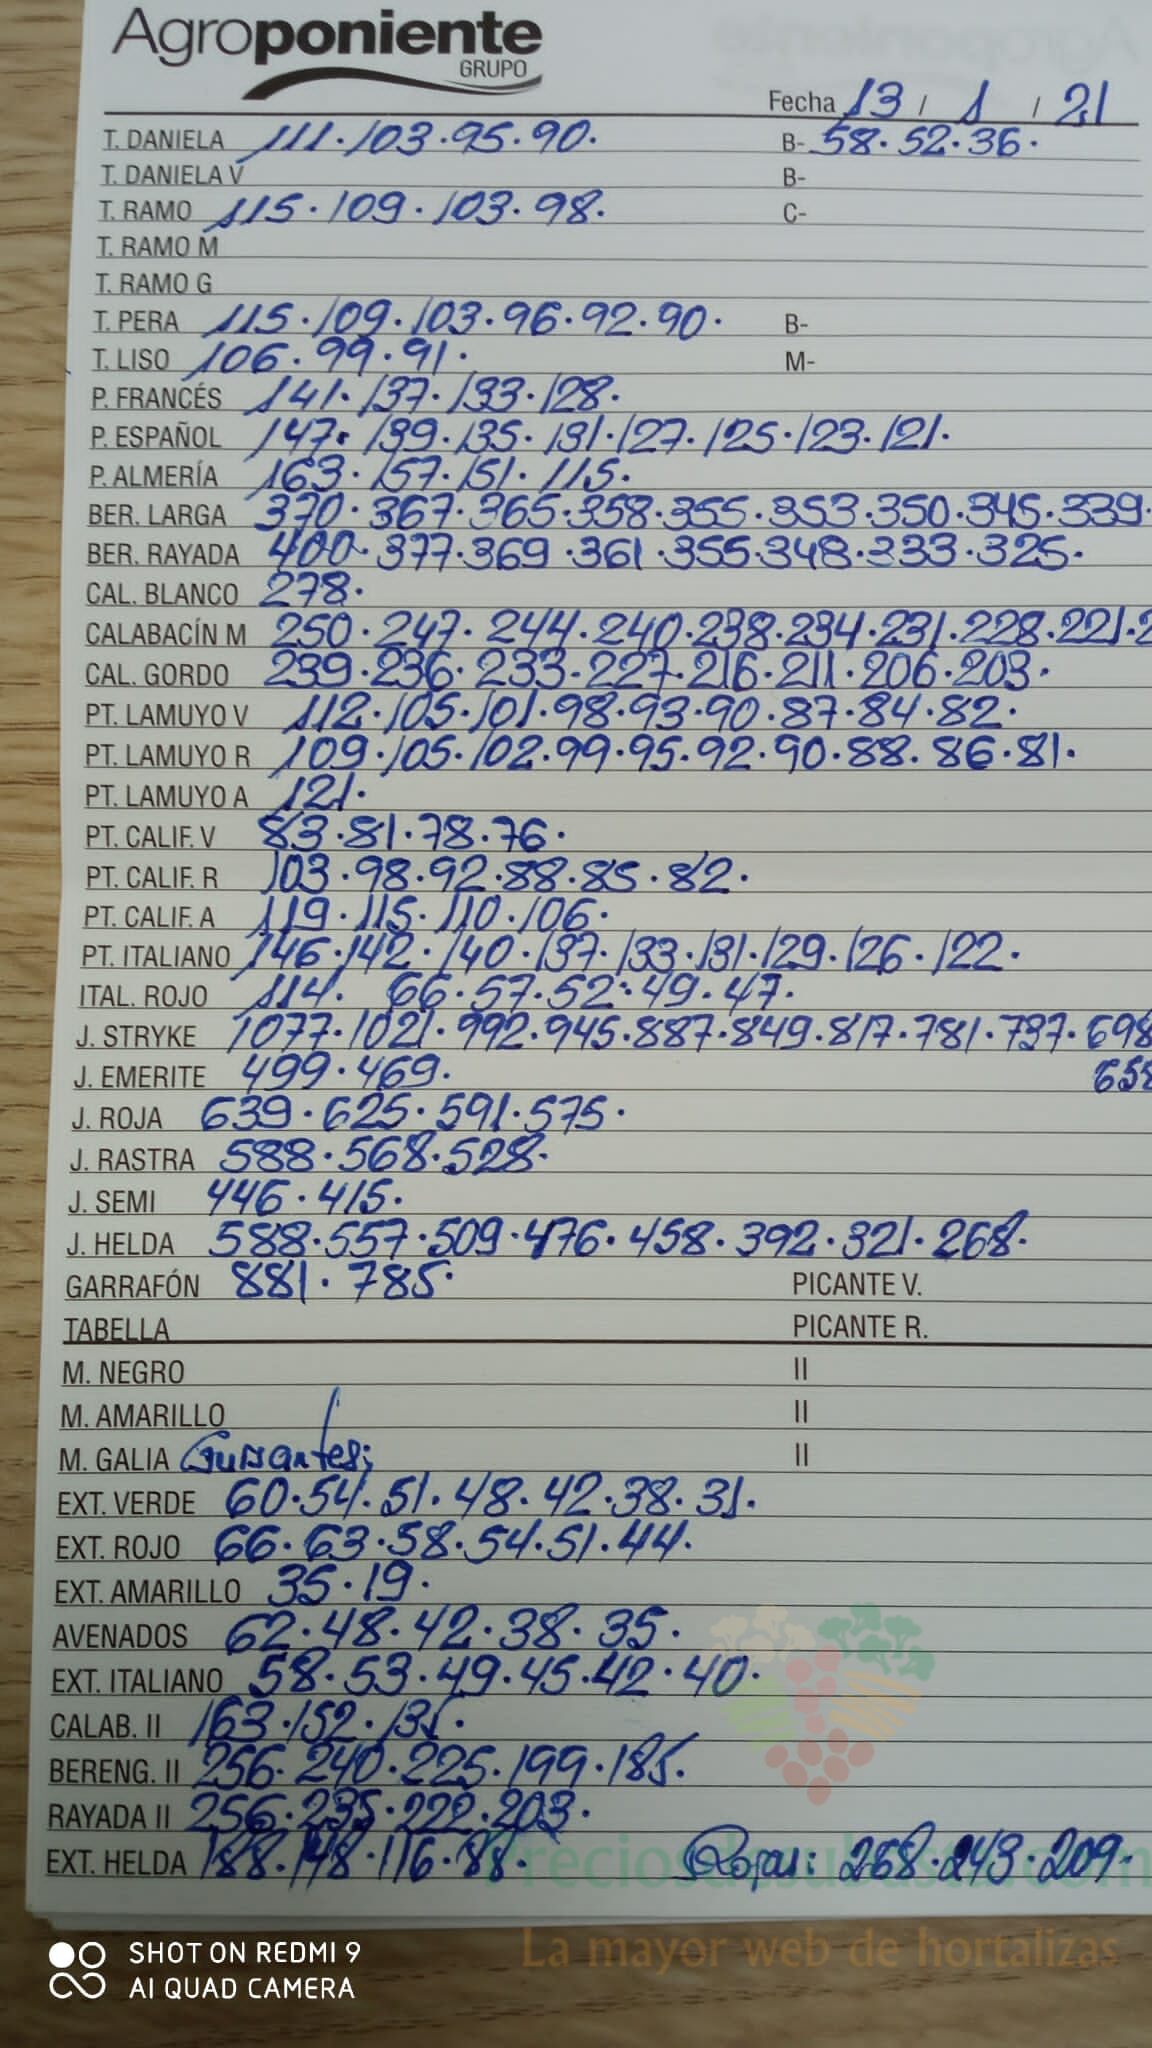 Agroponiente
GRUPO
Fecha 13 / 1 / 21
T. DANIELA 111·103·95·90· B- 58·52·36·
T. DANIELA V B-
T. RAMO 115·109·103·98· C-
T. RAMO M
T. RAMO G
T. PERA 115·109·103·96·92·90· B-
T. LISO 106·99·91· M-
P. FRANCÉS 141·137·133·128·
P. ESPAÑOL 147·139·135·131·127·125·123·121·
P. ALMERÍA 163·157·151·115·
BER. LARGA 370·367·365·358·355·353·350·345·339·
BER. RAYADA 400·377·369·361·355·348·333·325·
CAL. BLANCO 278·
CALABACÍN M 250·247·244·240·238·234·231·228·221·2
CAL. GORDO 239·236·233·227·216·211·206·203·
PT. LAMUYO V 112·105·101·98·93·90·87·84·82·
PT. LAMUYO R 109·105·102·99·95·92·90·88·86·81·
PT. LAMUYO A 121·
PT. CALIF. V 83·81·78·76·
PT. CALIF. R 103·98·92·88·85·82·
PT. CALIF. A 119·115·110·106·
PT. ITALIANO 146·142·140·137·133·131·129·126·122·
ITAL. ROJO 114· 66·57·52·49·47·
J. STRYKE 1077·1021·992·945·887·849·817·781·737·698
J. EMERITE 499·469· 658
J. ROJA 639·625·591·575·
J. RASTRA 588·568·528·
J. SEMI 446·415·
J. HELDA 588·557·509·476·458·392·321·268·
GARRAFÓN 881·785· PICANTE V.
TABELLA PICANTE R.
M. NEGRO II
M. AMARILLO II
M. GALIA Guisantes; II
EXT. VERDE 60·54·51·48·42·38·31·
EXT. ROJO 66·63·58·54·51·44·
EXT. AMARILLO 35·19·
AVENADOS 62·48·42·38·35·
EXT. ITALIANO 58·53·49·45·42·40·
CALAB. II 163·152·135·
BERENG. II 256·240·225·199·185·
RAYADA II 256·235·222·203·
EXT. HELDA 188·148·116·88· Rojas: 268·243·209·
Preciosdesubasta.com
La mayor web de hortalizas
SHOT ON REDMI 9
AI QUAD CAMERA